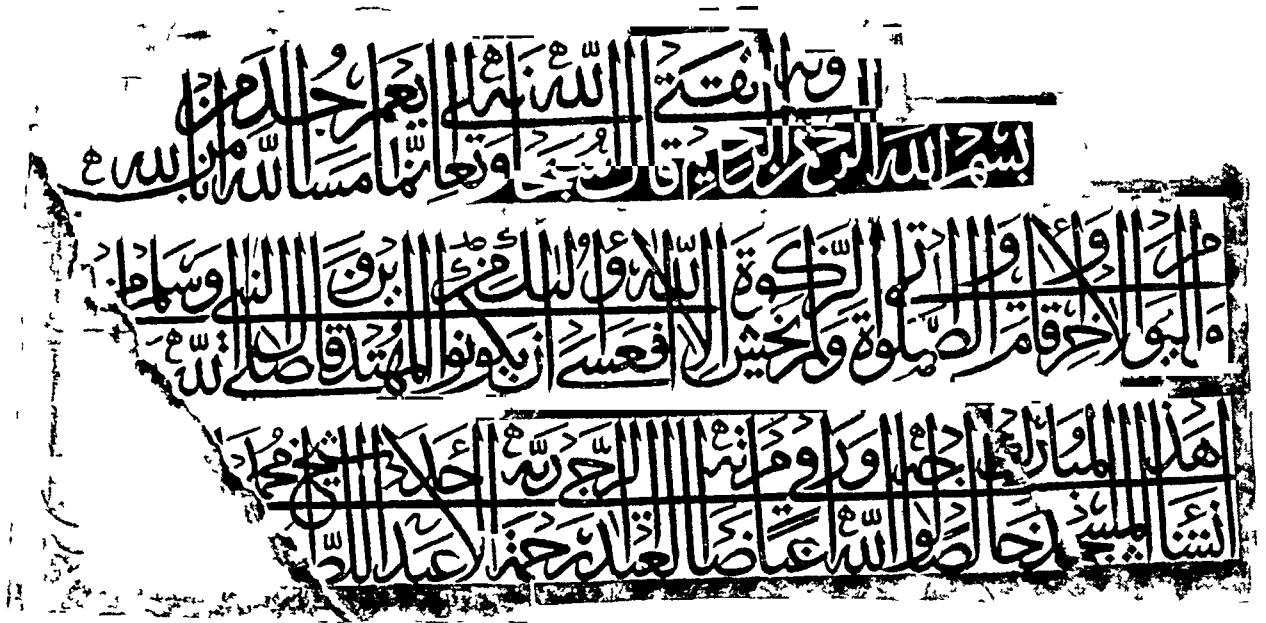 بسم الله الرحمن الرحيم وبه ثقتي قال الله سبحانه وتعالى انما يعمر مساجد الله من امن بالله
واليوم الاخر واقام الصلوة واتى الزكوة ولم يخش الا الله فعسى اولئك ان يكونوا من المهتدين قال النبي صلى الله وسلم من
انشا هذا المسجد المبارك خالصا لوجه الله في مرضاته العبد الراجي رحمة ربه الاحد عبد الشيخ محمد